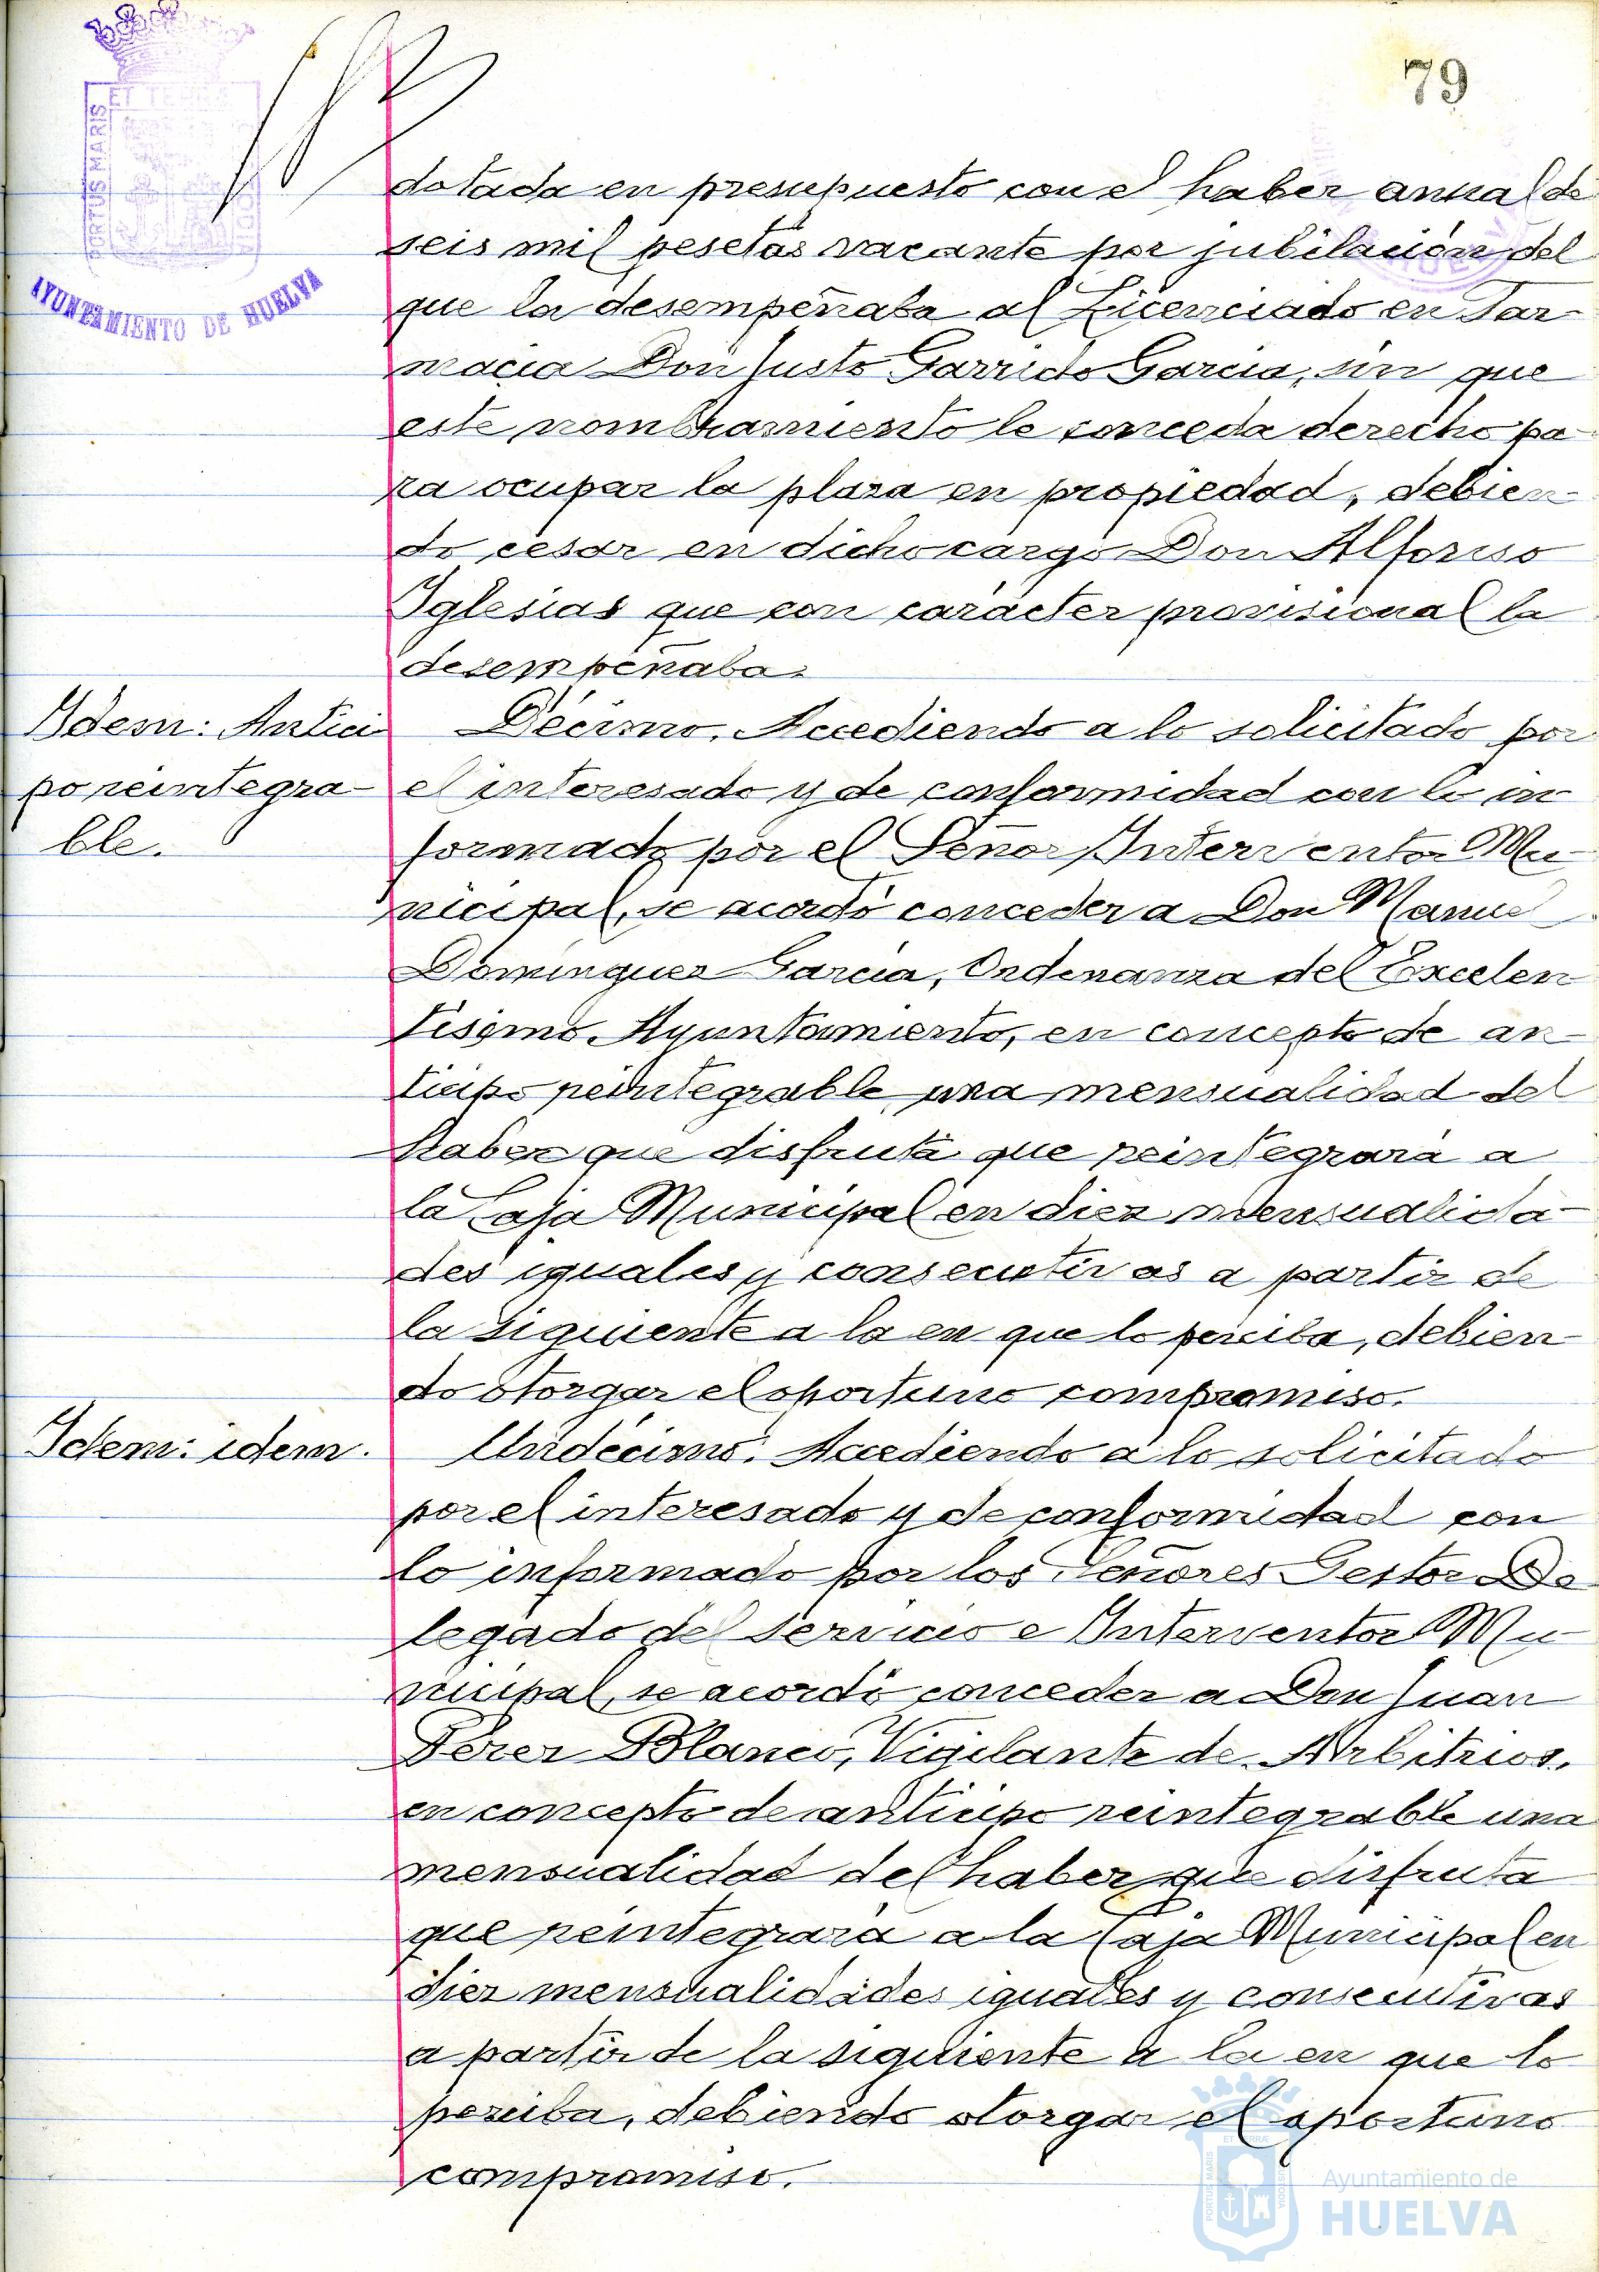 79
ET TERRÆ
PORTUS MARIS
CUSTODIA
AYUNTAMIENTO DE HUELVA
dotada en presupuesto con el haber anual de
seis mil pesetas vacante por jubilación del
que la desempeñaba al Licenciado en Far-
macia Don Justo Garrido Garcia, sin que
este nombramiento le conceda derecho pa-
ra ocupar la plaza en propiedad, debien-
do cesar en dicho cargo Don Alfonso
Iglesias que con carácter provisional la
desempeñaba.
Idem: Antici
po reintegra-
ble.
Décimo. Accediendo a lo solicitado por
el interesado y de conformidad con lo in
formado por el Señor Interventor Mu-
nicipal, se acordó conceder a Don Manuel
Dominguez Garcia, Ordenanza del Excelen
tisimo Ayuntamiento, en concepto de an-
ticipo reintegrable una mensualidad del
haber que disfruta que reintegrará a
la Caja Municipal en diez mensualida-
des iguales y consecutivas a partir de
la siguiente a la en que lo perciba, debien-
do otorgar el oportuno compromiso.
Idem: idem.
Undécimo. Accediendo a lo solicitado
por el interesado y de conformidad con
lo informado por los Señores Gestor De
legado del Servicio e Interventor Mu-
nicipal, se acordó conceder a Don Juan
Pérez Blanco, Vigilante de Arbitrios,
en concepto de anticipo reintegrable una
mensualidad del haber que disfruta
que reintegrará a la Caja Municipal en
diez mensualidades iguales y consecutivas
a partir de la siguiente a la en que lo
perciba, debiendo otorgar el oportuno
compromiso.
Ayuntamiento de
HUELVA